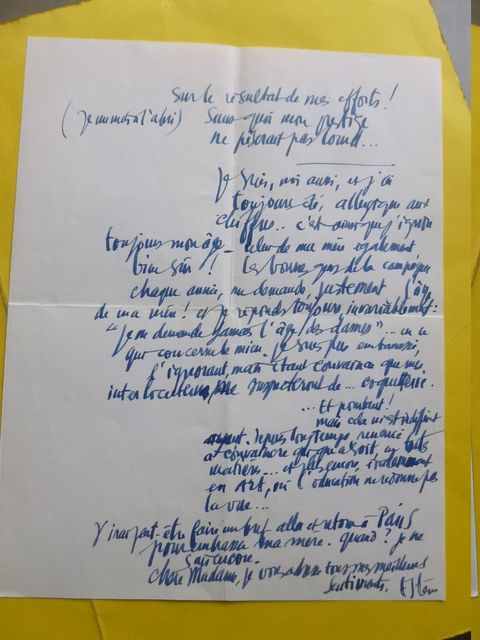 sur le résultat de mes efforts !
(Je me mets à l'abri) Sans quoi mon prestige
ne pèserait pas lourd...
Je suis, moi aussi, et j'ai
toujours été, allergique aux
chiffres.. c'est ainsi que j'ignore
toujours mon âge_ celui de ma mère également
bien sûr !! Les bonnes gens de la campagne
chaque année, me demande, justement l'âge
de ma mère ! et je réponds toujours, invariablement :
"je ne demande jamais l'âge des dames"... en ce
qui concerne le mien, je suis plus embarrassé,
l'ignorant, mais étant convaincu que mes
interlocuteurs me suspecteront de... coquetterie.
...Et pourtant !
mais cela m'est indifférent
ayant, depuis longtemps, renoncé
à convaincre qui que ce soit, en toutes
matières... et plus encore, évidemment
en Art, où l'éducation ne redonne pas
la vue...
J'irai peut-être faire un bref aller et retour à Paris
pour embrasser ma mère. quand ? je ne
sais encore.
Chère Madame, je vous adresse tous mes meilleurs
sentiments.